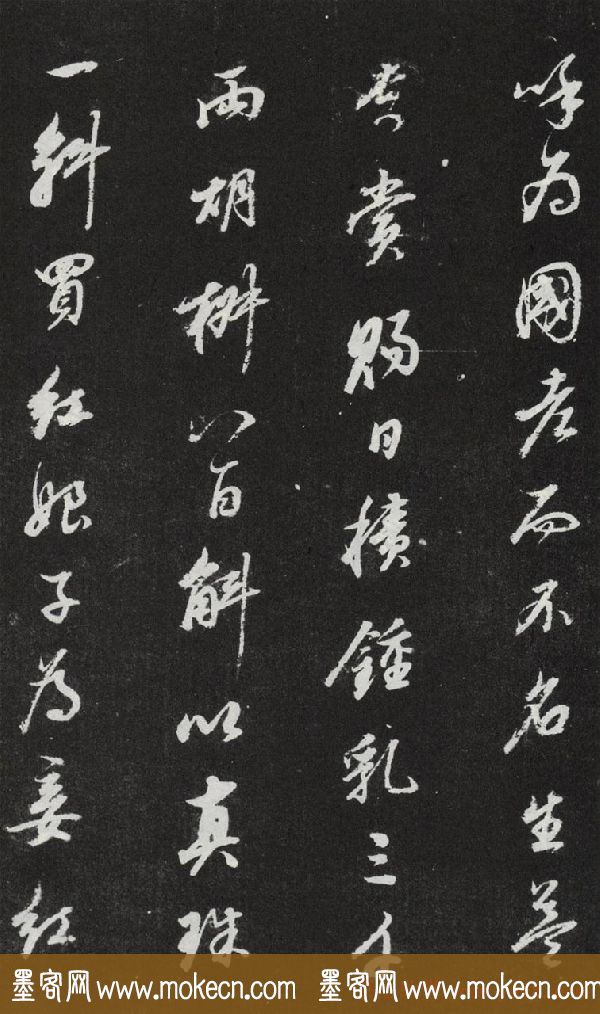 呼為國老而不名生益
貴賞賜日積鍾乳三千
兩胡椒八百斛以真珠
一斛買紅娘子為妾紅
墨客网 www.mokecn.com 墨客网 www.mokecn.com